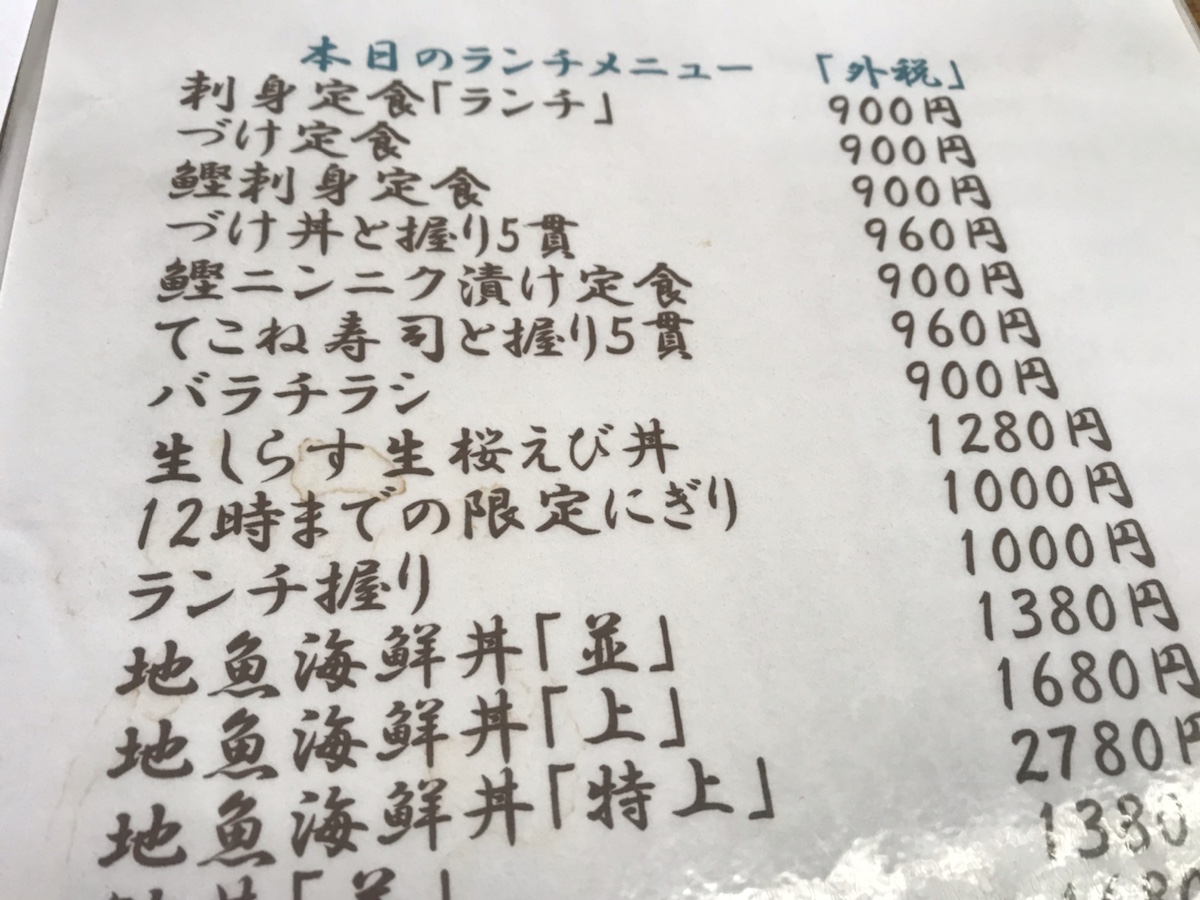 本日のランチメニュー 「外税」
刺身定食「ランチ」 900円
づけ定食 900円
鰹刺身定食 900円
づけ丼と握り5貫 960円
鰹ニンニク漬け定食 900円
てこね寿司と握り5貫 960円
バラチラシ 900円
生しらす生桜えび丼 1280円
12時までの限定にぎり 1000円
ランチ握り 1000円
地魚海鮮丼「並」 1380円
地魚海鮮丼「上」 1680円
地魚海鮮丼「特上」 2780円
1380